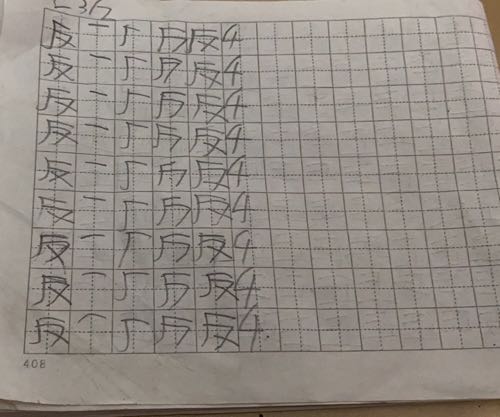 反 一 厂 反 4
反 一 厂 反 4
反 一 厂 反 4
反 一 厂 反 4
反 一 厂 反 4
反 一 厂 反 4
反 一 厂 反 4
反 一 厂 反 4
反 一 厂 反 4
408